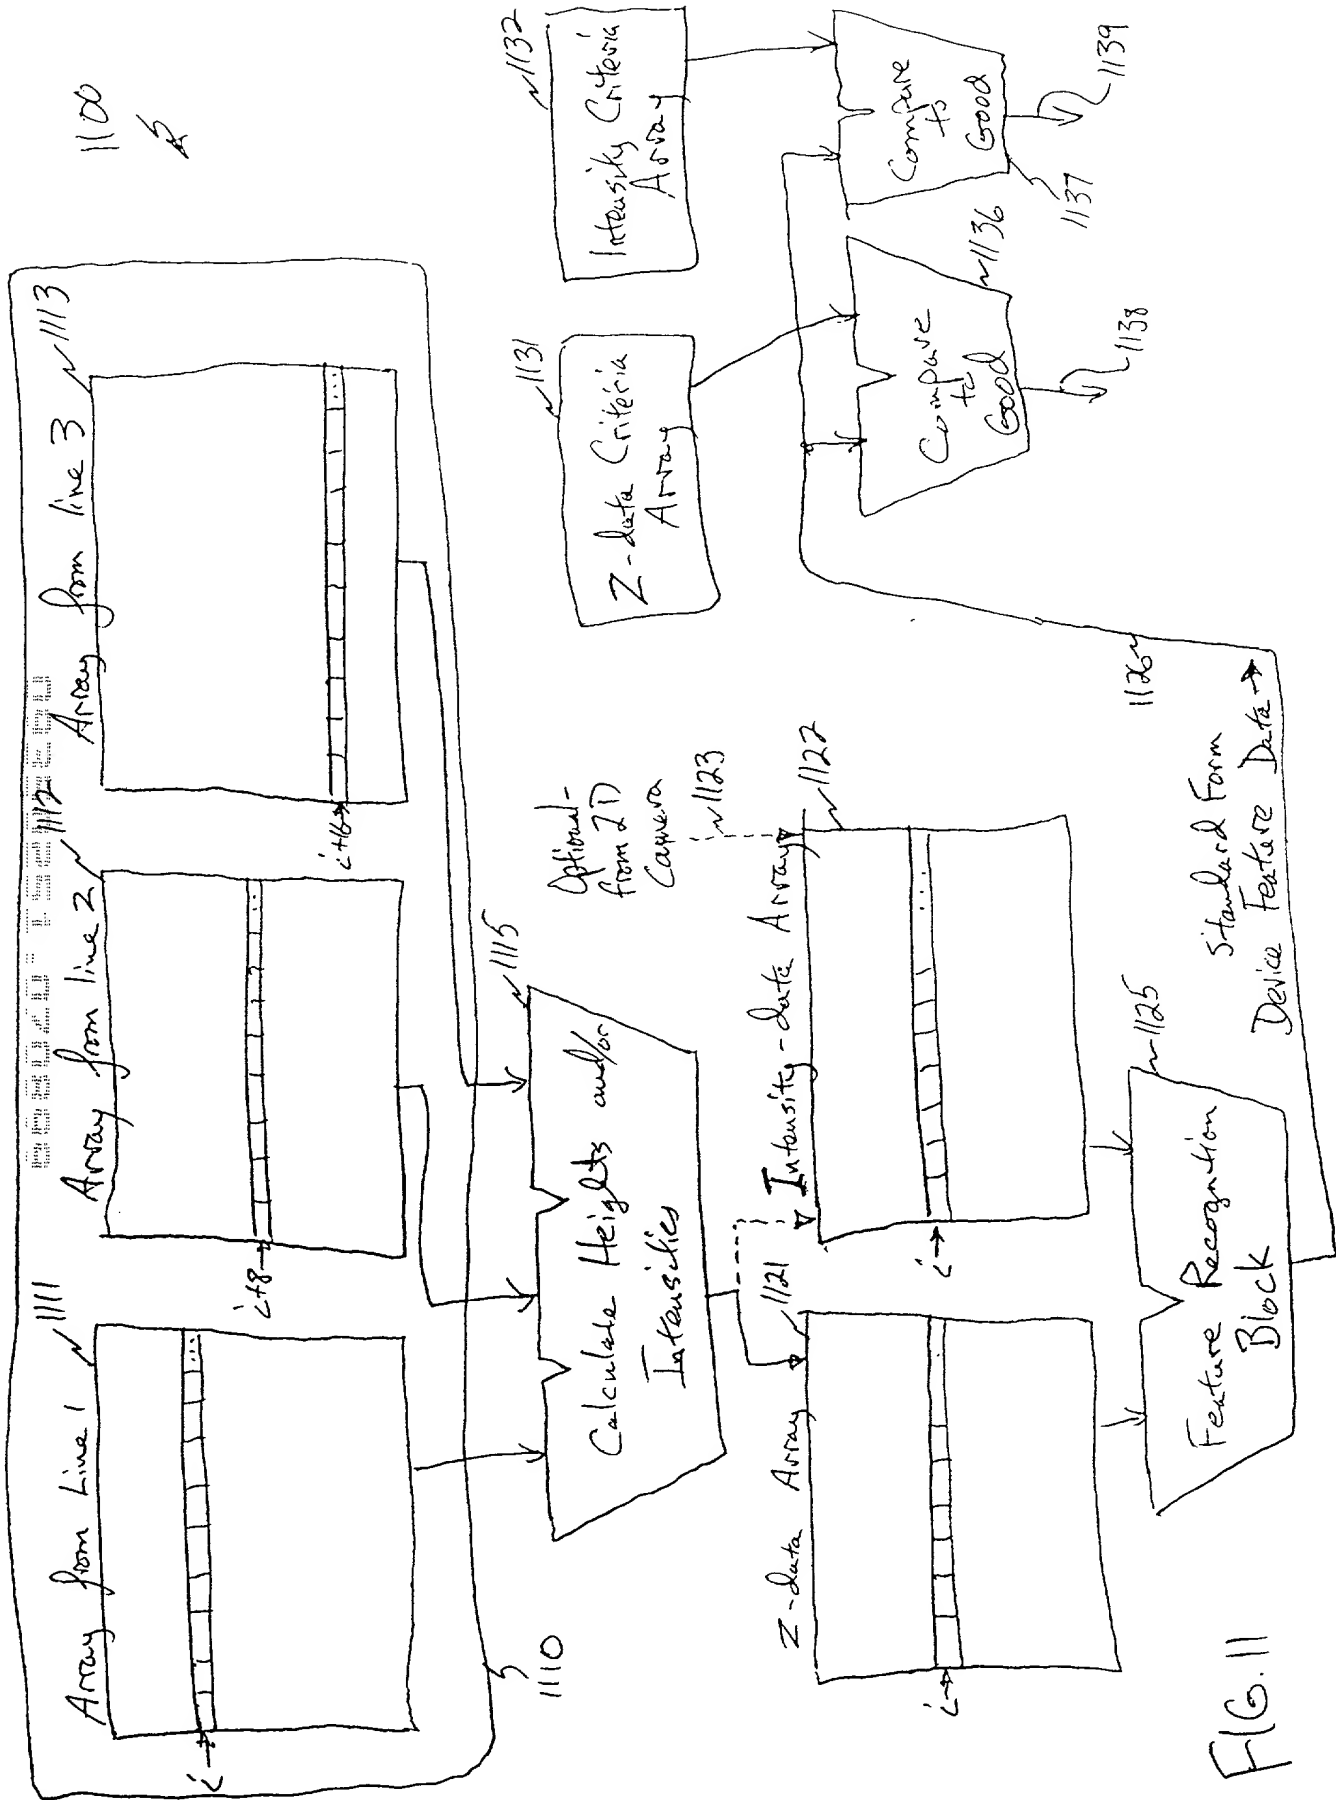 1100
Array from Line 1
1111
Array from line 2
1112
Array from line 3
1113
i
i+8
i+16
1110
Calculate Heights and/or
Intensities
1115
Optional-
from 2D
Camera
1123
Z-data Array
1121
Intensity-data Array
1122
i
i
Feature Recognition
Block
1125
Standard Form
Device Feature Data
1126
Z-data Criteria
Array
1131
Intensity Criteria
Array
1132
Compare
to
Good
1136
1138
Compare
to
Good
1137
1139
FIG. 11